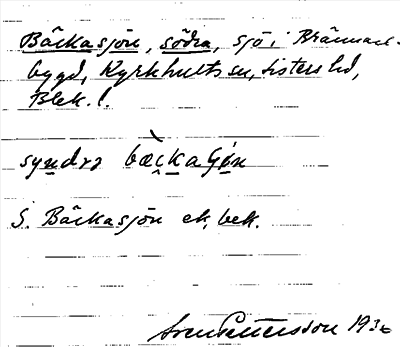 Bäckasjön, södra, sjö i Brännare-
bygd, Kyrkhults sn, Listers hd,
Blek. l.
syndra bæ̀ckaɧön
S. Bäckasjön ek, bek.
Sven Pettersson 1936